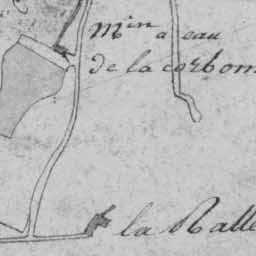 Min a eau
de la corbon
la Ralle